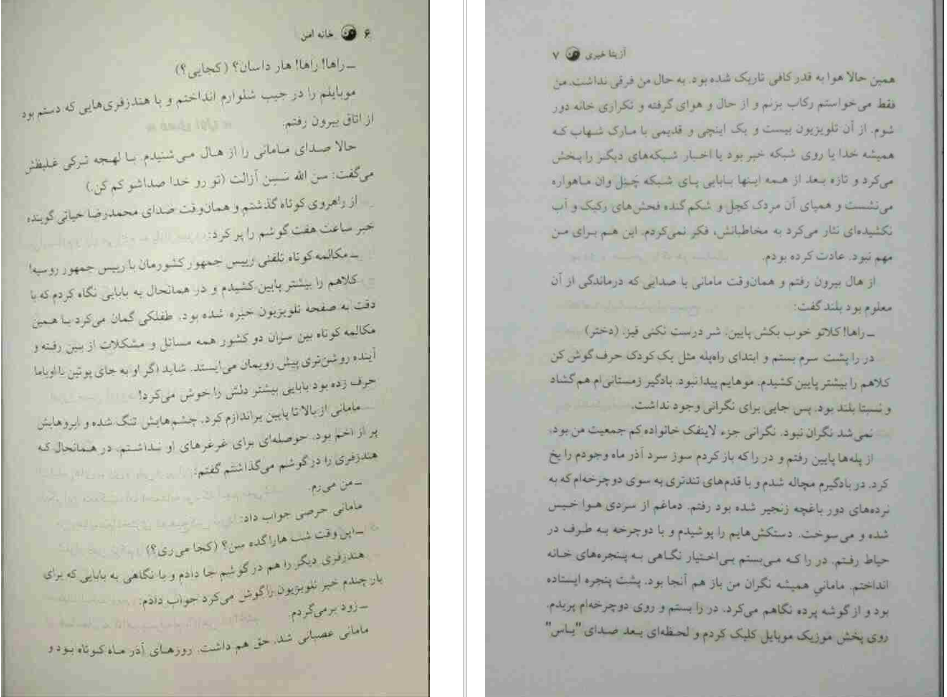 ۶ خانه امن
ـ راها! راها! هار داسان؟ (کجایی؟)
موبایلم را در جیب شلوارم انداختم و با هندزفری‌هایی که دستم بود
از اتاق بیرون رفتم.
حالا صدای مامانی را از هال می‌شنیدم. با لهجه ترکی غلیظش
می‌گفت: سن الله سسین آزالت (تو رو خدا صداشو کم کن.)
از راهروی کوتاه گذشتم و همان‌وقت صدای محمدرضا حیاتی گوینده
خبر ساعت هفت گوشم را پر کرد:
ـ مکالمه کوتاه تلفنی رییس جمهور کشورمان با رییس جمهور روسیه!
کلاهم را بیشتر پایین کشیدم و در همانحال به بابایی نگاه کردم که با
دقت به صفحه تلویزیون خیره شده بود. طفلکی گمان می‌کرد با همین
مکالمه کوتاه بین سران دو کشور همه مسائل و مشکلات از بین رفته و
آینده روشن‌تری پیش رویمان می‌ایستد. شاید اگر او به جای پوتین با اوباما
حرف زده بود بابایی بیشتر دلش را خوش می‌کرد!
مامانی از بالا تا پایین براندازم کرد. چشم‌هایش تنگ شده و ابروهایش
پر از اخم بود. حوصله‌ای برای غرغرهای او نداشتم، در همانحال که
هندزفری را در گوشم می‌گذاشتم گفتم:
ـ من می‌رم.
مامانی حرصی جواب داد:
ـ این وقت شب هارا گده سن؟ (کجا می‌ری؟)
هندزفری دیگر را هم در گوشم جا دادم و با نگاهی به بابایی که برای
بار چندم خبر تلویزیون را گوش می‌کرد جواب دادم:
ـ زود برمی‌گردم.
مامانی عصبانی شد. حق هم داشت. روزهای آذر ماه کوتاه بود و
آزیتا خیری ۷
همین حالا هوا به قدر کافی تاریک شده بود. به حال من فرقی نداشت. من
فقط می‌خواستم رکاب بزنم و از حال و هوای گرفته و تکراری خانه دور
شوم. از آن تلویزیون بیست و یک اینچی و قدیمی با مارک شهاب که
همیشه خدا یا روی شبکه خبر بود یا اخبار شبکه‌های دیگر را پخش
می‌کرد و تازه بعد از همه اینها بابایی پای شبکه چنل وان ماهواره
می‌نشست و همپای آن مردک کچل و شکم گنده فحش‌های رکیک و آب
نکشیده‌ای نثار می‌کرد به مخاطبانش، فکر نمی‌کردم. این هم برای من
مهم نبود. عادت کرده بودم.
از هال بیرون رفتم و همان‌وقت مامانی با صدایی که درماندگی از آن
معلوم بود بلند گفت:
ـ راها! کلاتو خوب بکش پایین. شر درست نکنی قیز. (دختر)
در را پشت سرم بستم و ابتدای راه‌پله مثل یک کودک حرف گوش کن
کلاهم را بیشتر پایین کشیدم. موهایم پیدا نبود. بادگیر زمستانی‌ام هم گشاد
و نسبتا بلند بود. پس جایی برای نگرانی وجود نداشت.
نمی‌شد نگران نبود. نگرانی جزء لاینفک خانواده کم جمعیت من بود.
از پله‌ها پایین رفتم و در را که باز کردم سوز سرد آذر ماه وجودم را یخ
کرد. در بادگیرم مچاله شدم و با قدم‌های تندتری به سوی دوچرخه‌ام که به
نرده‌های دور باغچه زنجیر شده بود رفتم. دماغم از سردی هوا خیس
شده و می‌سوخت. دستکش‌هایم را پوشیدم و با دوچرخه به طرف در
حیاط رفتم. در را که می‌بستم بی‌اختیار نگاهی به پنجره‌های خانه
انداختم. مامانی همیشه نگران من باز هم آنجا بود. پشت پنجره ایستاده
بود و از گوشه پرده نگاهم می‌کرد. در را بستم و روی دوچرخه‌ام پریدم.
روی پخش موزیک موبایل کلیک کردم و لحظه‌ای بعد صدای "یاس"